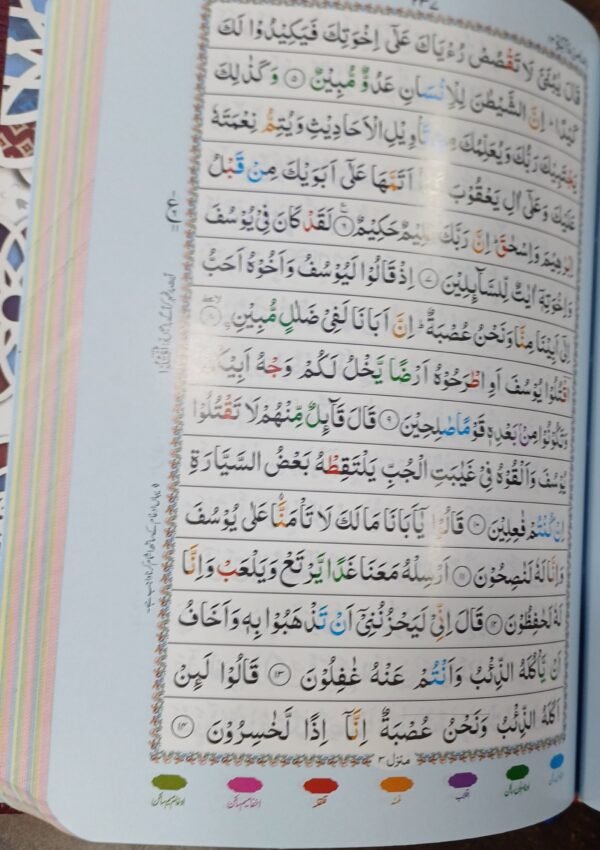 ٢٣٧
قَالَ يٰبُنَيَّ لَا تَقْصُصْ رُءْيَاكَ عَلٰٓى اِخْوَتِكَ فَيَكِيْدُوْا لَكَ
كَيْدًا ؕ اِنَّ الشَّيْطٰنَ لِلْاِنْسَانِ عَدُوٌّ مُّبِيْنٌ ۝٥ وَكَذٰلِكَ
يَجْتَبِيْكَ رَبُّكَ وَيُعَلِّمُكَ مِنْ تَاْوِيْلِ الْاَحَادِيْثِ وَيُتِمُّ نِعْمَتَهٗ
عَلَيْكَ وَعَلٰٓى اٰلِ يَعْقُوْبَ كَمَاۤ اَتَمَّهَا عَلٰٓى اَبَوَيْكَ مِنْ قَبْلُ
اِبْرٰهِيْمَ وَاِسْحٰقَ ؕ اِنَّ رَبَّكَ عَلِيْمٌ حَكِيْمٌ ۝٦ لَقَدْ كَانَ فِيْ يُوْسُفَ
وَاِخْوَتِهٖۤ اٰيٰتٌ لِّلسَّآئِلِيْنَ ۝٧ اِذْ قَالُوْا لَيُوْسُفُ وَاَخُوْهُ اَحَبُّ
اِلٰٓى اَبِيْنَا مِنَّا وَنَحْنُ عُصْبَةٌ ؕ اِنَّ اَبَانَا لَفِيْ ضَلٰلٍ مُّبِيْنِ ۝٨
اقْتُلُوْا يُوْسُفَ اَوِ اطْرَحُوْهُ اَرْضًا يَّخْلُ لَكُمْ وَجْهُ اَبِيْكُمْ
وَتَكُوْنُوْا مِنْۢ بَعْدِهٖ قَوْمًا صٰلِحِيْنَ ۝٩ قَالَ قَآئِلٌ مِّنْهُمْ لَا تَقْتُلُوْا
يُوْسُفَ وَاَلْقُوْهُ فِيْ غَيٰبَتِ الْجُبِّ يَلْتَقِطْهُ بَعْضُ السَّيَّارَةِ
اِنْ كُنْتُمْ فٰعِلِيْنَ ۝١٠ قَالُوْا يٰۤاَبَانَا مَا لَكَ لَا تَاْمَنَّا عَلٰى يُوْسُفَ
وَاِنَّا لَهٗ لَنٰصِحُوْنَ ۝١١ اَرْسِلْهُ مَعَنَا غَدًا يَّرْتَعْ وَيَلْعَبْ وَاِنَّا
لَهٗ لَحٰفِظُوْنَ ۝١٢ قَالَ اِنِّيْ لَيَحْزُنُنِيْۤ اَنْ تَذْهَبُوْا بِهٖ وَاَخَافُ
اَنْ يَّاْكُلَهُ الذِّئْبُ وَاَنْتُمْ عَنْهُ غٰفِلُوْنَ ۝١٣ قَالُوْا لَئِنْ
اَكَلَهُ الذِّئْبُ وَنَحْنُ عُصْبَةٌ اِنَّاۤ اِذًا لَّخٰسِرُوْنَ ۝١٤
منزل ٣
قلب
غنہ
قلقلہ
اخفا میم ساکن
ادغام میم ساکن